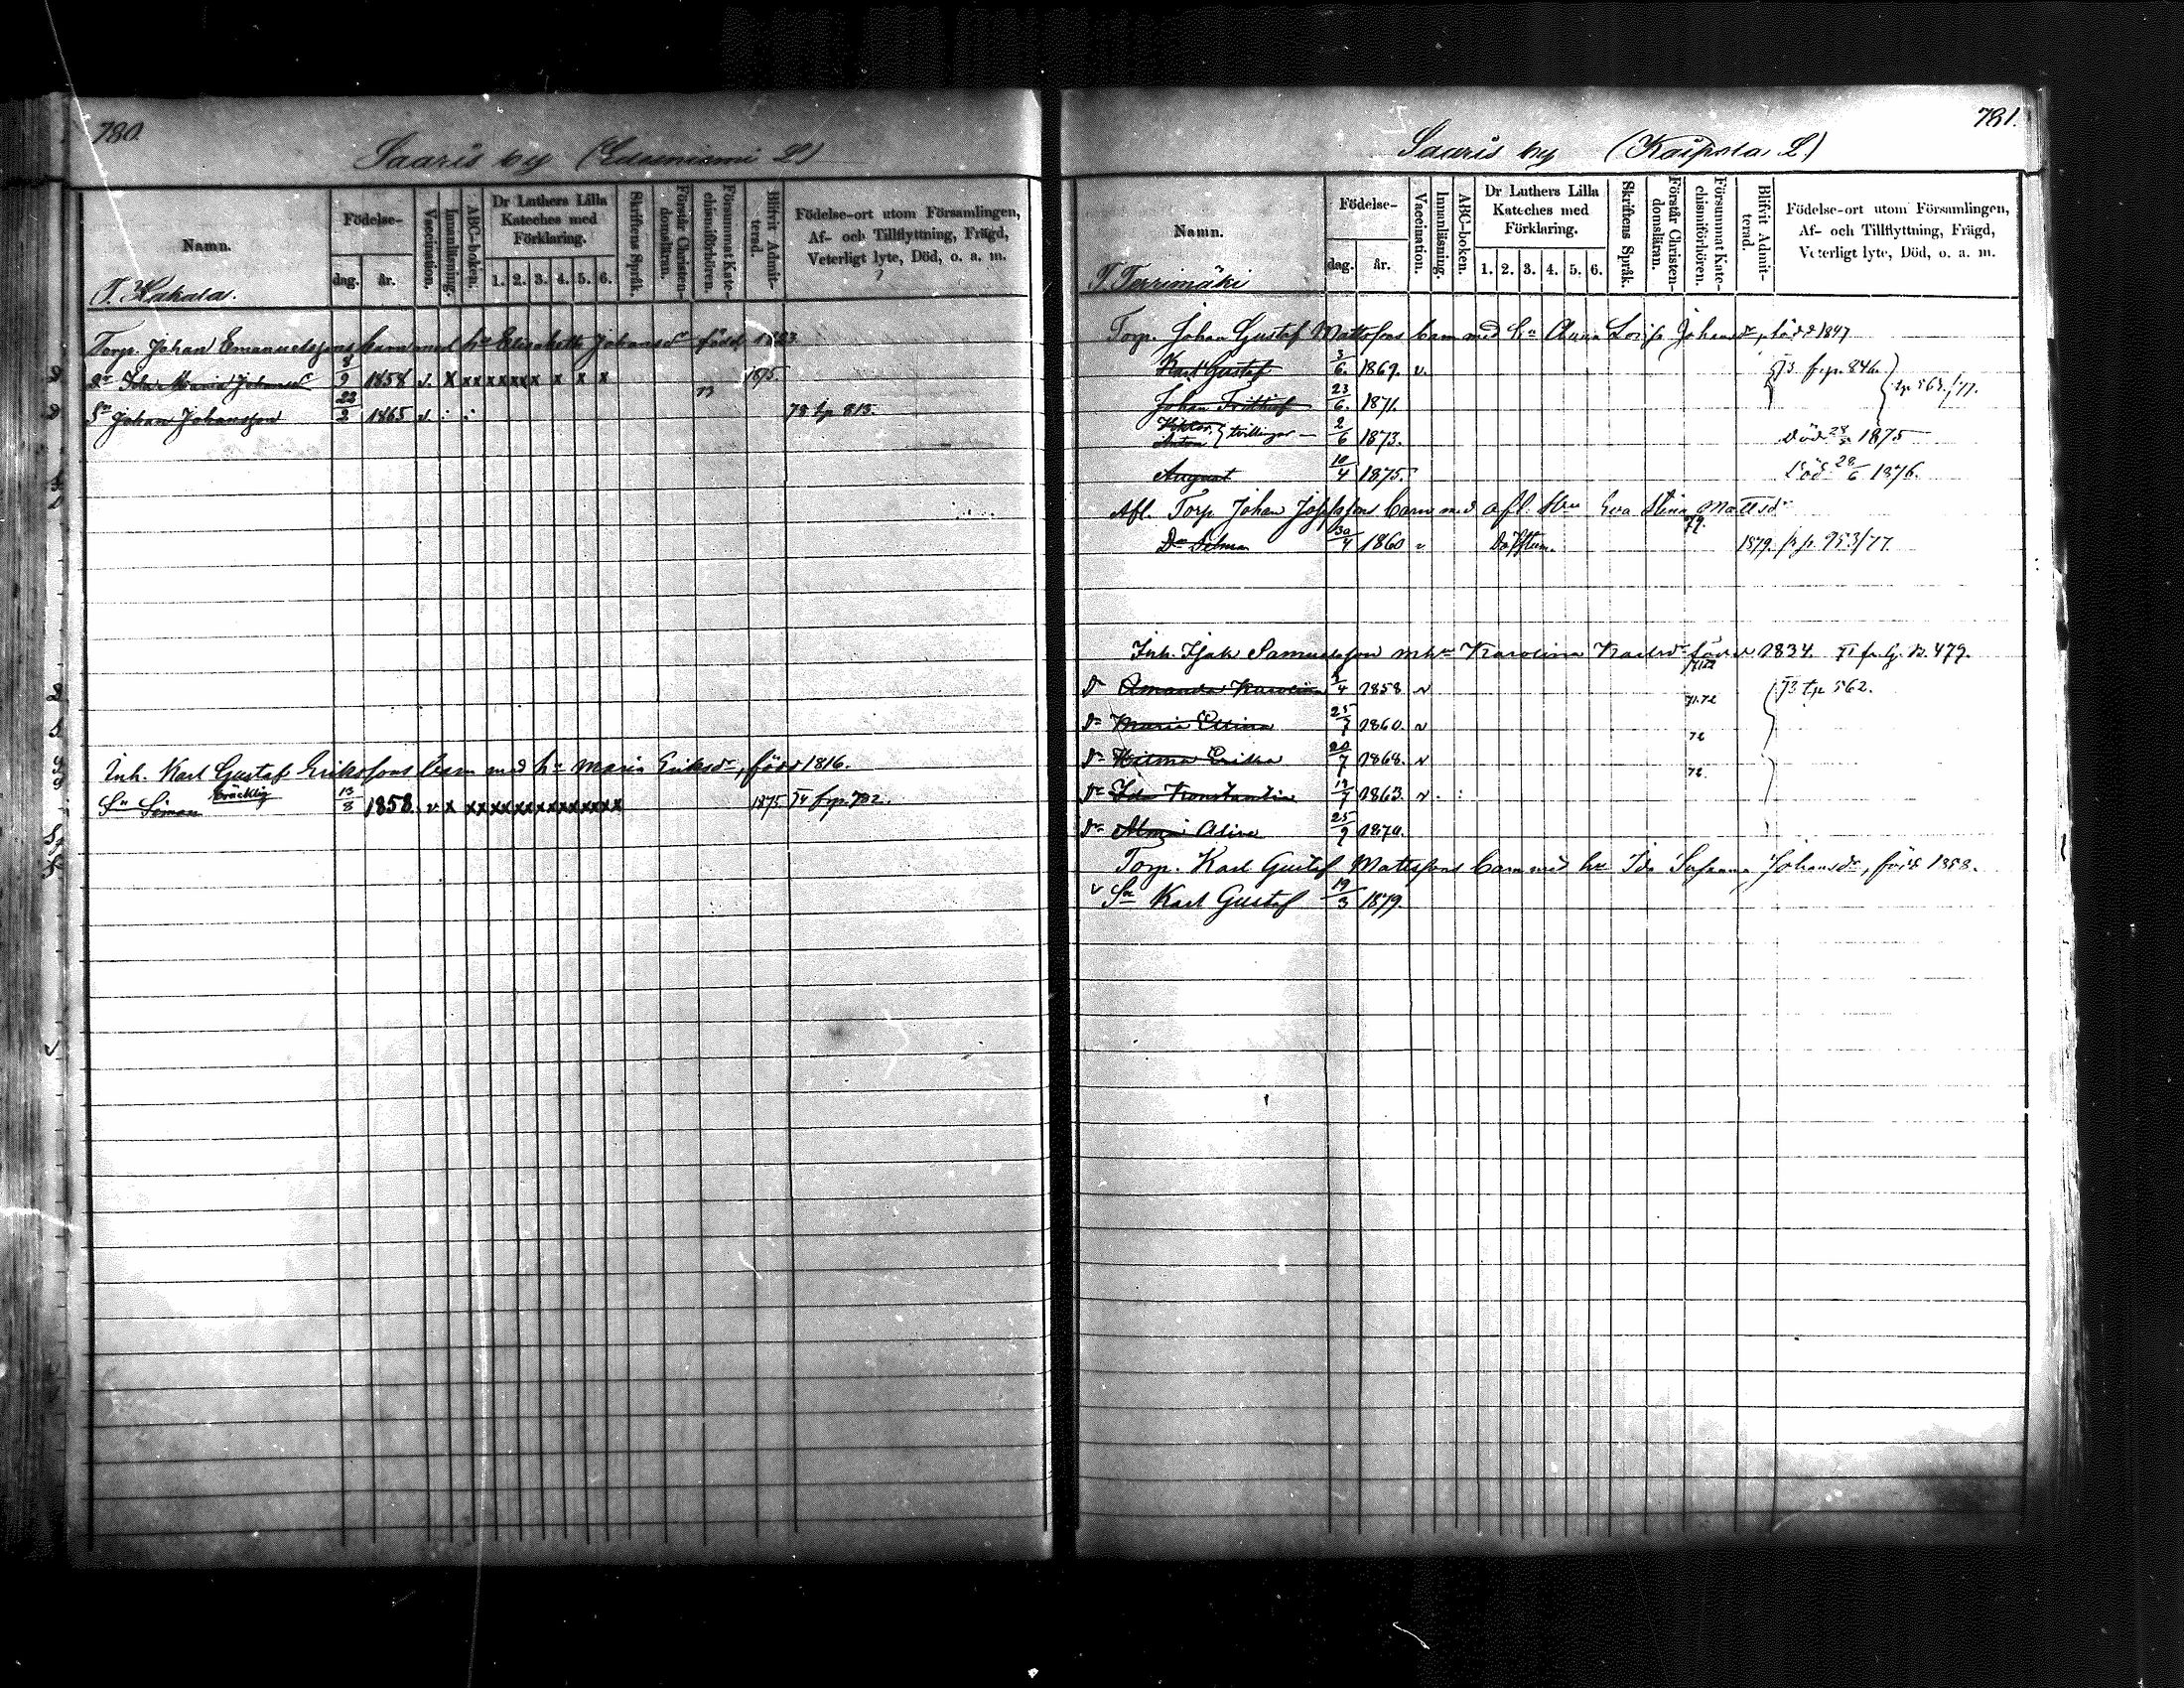 780.
Saaris by (Edunniemi L)
Namn.
Födelse-
dag. år.
Vaccination.
Innanläsning.
ABC-boken.
Dr Luthers Lilla Kateches med Förklaring.
1. 2. 3. 4. 5. 6.
Skriftens Språk.
Förstår Christendomsläran.
Försummat Katechismiförhören.
Blifvit Admitterad.
Födelse-ort utom Församlingen, Af- och Tillflyttning, Frägd, Veterligt lyte, Död, o. a. m.
T. Kakala.
Torp. Johan Emanuelssons barn med hu Elisabeth Johansdr född 1823
Dr Ida Maria Johansdr 8/9 1858 v. x xxxxxxx x x x 73 1875.
Sn Johan Johansson 22/2 1865 v : : 78 tp 813.
Inh. Karl Gustaf Erikssons barn med hu Maria Eriksdr, född 1816.
Sn Simon bräcklig 13/8 1858. v x xxxxxxxxxxxxxx 1875 74 frp. 702.
781.
Saaris by (Kaipola L.)
Namn.
Födelse-
dag. år.
Vaccination.
Innanläsning.
ABC-boken.
Dr Luthers Lilla Kateches med Förklaring.
1. 2. 3. 4. 5. 6.
Skriftens Språk.
Förstår Christendomsläran.
Försummat Katechismiförhören.
Blifvit Admitterad.
Födelse-ort utom Församlingen, Af- och Tillflyttning, Frägd, Veterligt lyte, Död, o. a. m.
T Terrimäki
Torp. Johan Gustaf Mattssons barn med hu Anna Lovisa Johansdr, född 1847
Karl Gustaf 3/6. 1869. v. 73 frp. 846. tp 563./77.
Johan Fridhiof 23/6. 1871.
Viktor Anton } tvillingar — 2/6 1873. död 1875
August 10/4 1875. Död 28/6 1876.
Afl. Torp Johan Josefssons barn med afl. Hu Eva Stina Mattsdr
Dr Selma 30/4 1860 v 79. 1879. fr p. 953/77.
Inh. Isak Samuelsson m hu Karolina Karlsdr född 1834. 71 fr. p. 479.
Dr Amanda Karolina 2/4 1858 v 71.72 73 tp 562.
Dr Maria Elina 25/7 1860. v 71.72
Dr Hilma Erika 20/7 1868. v 72
Dr Ida Konstantia 13/7 1863. v . : 72.
Dr Alma Alina 25/9 1870.
Torp. Karl Gustaf Mattssons barn med hu Ida Susanna Johansdr, född 1858.
v Sn Karl Gustaf 19/3 1879.